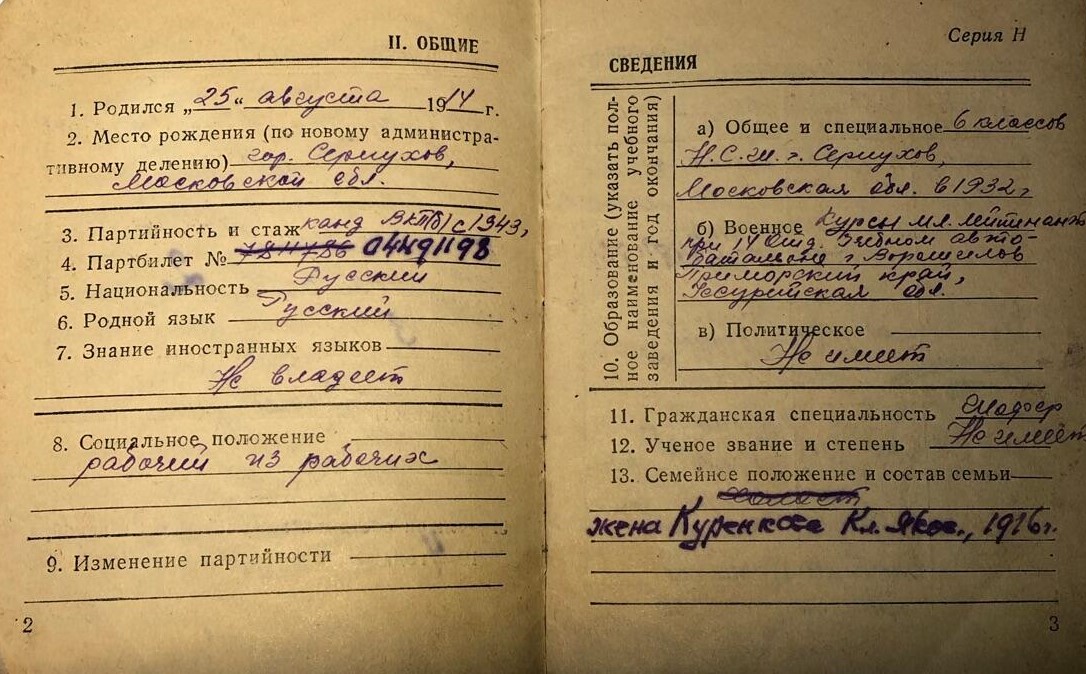 II. ОБЩИЕ
1. Родился „25“ августа 1914 г.
2. Место рождения (по новому администра-
тивному делению) гор. Серпухов,
Московской обл.
3. Партийность и стаж канд ВКП(б) с 1943,
4. Партбилет № 7811786 04491198
5. Национальность Русский
6. Родной язык Русский
7. Знание иностранных языков
Не владеет
8. Социальное положение
рабочий из рабочих
9. Изменение партийности
2
Серия Н
СВЕДЕНИЯ
10. Образование (указать пол-
ное наименование учебного
заведения и год окончания)
а) Общее и специальное 6 классов
Н.С.Ш. г. Серпухов,
Московская обл. в 1932 г
б) Военное Курсы мл. лейтинант
при 14 Отд. Учебном авто-
батальоне г Ворошилов
Приморский край,
Уссурийская обл.
в) Политическое
Не имеет
11. Гражданская специальность Шофер
12. Ученое звание и степень Не имеет
13. Семейное положение и состав семьи
холост
жена Куренкова Кл. Яков., 1916 г.
3